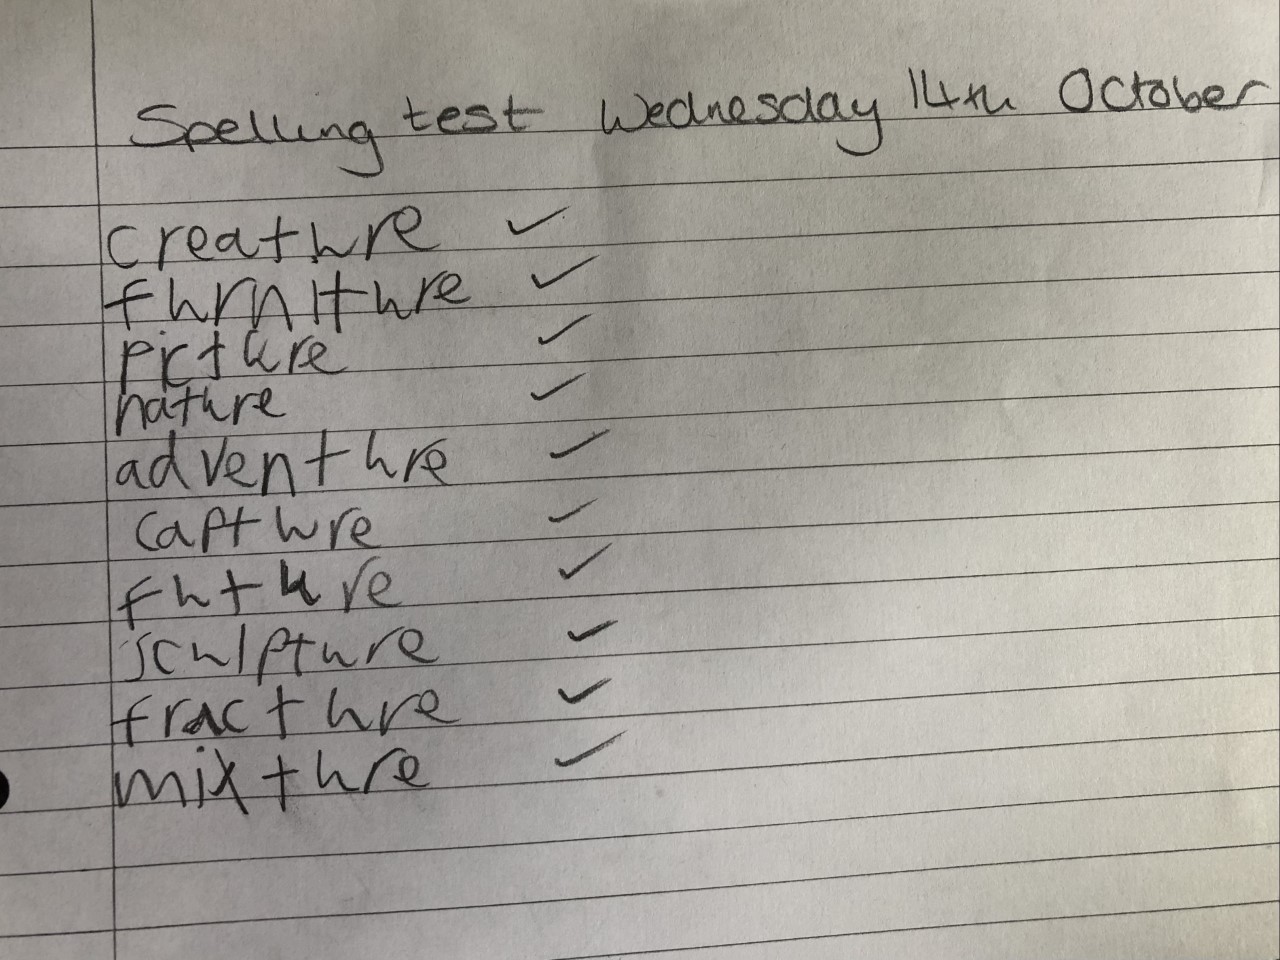 Spelling test Wednesday 14th October
creature ✓
furniture ✓
picture ✓
nature ✓
adventure ✓
capture ✓
future ✓
sculpture ✓
fracture ✓
mixture ✓